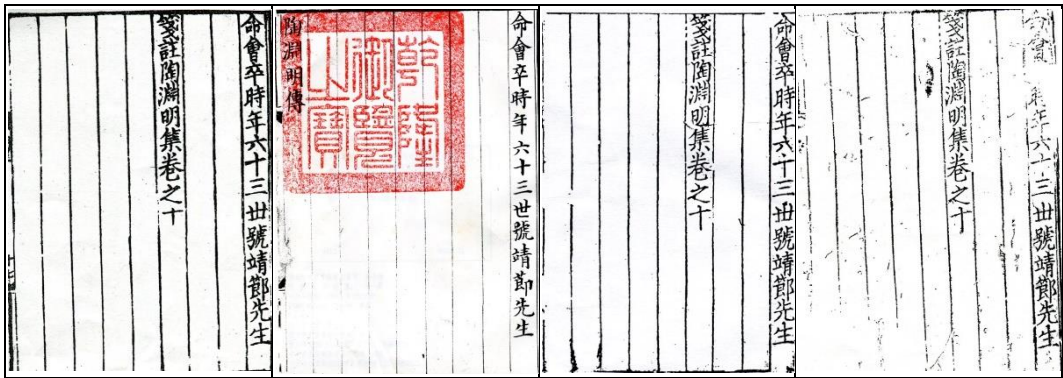 命會卒時年六十三丗號靖節先生
箋註陶淵明集卷之十
命會卒時年六十三世號靖節先生
乾隆
御覽
之寶
陶淵明傳
命會卒時年六十三丗號靖節先生
箋註陶淵明集卷之十
命會時年六十三丗號靖節先生
箋註陶淵明集卷之十